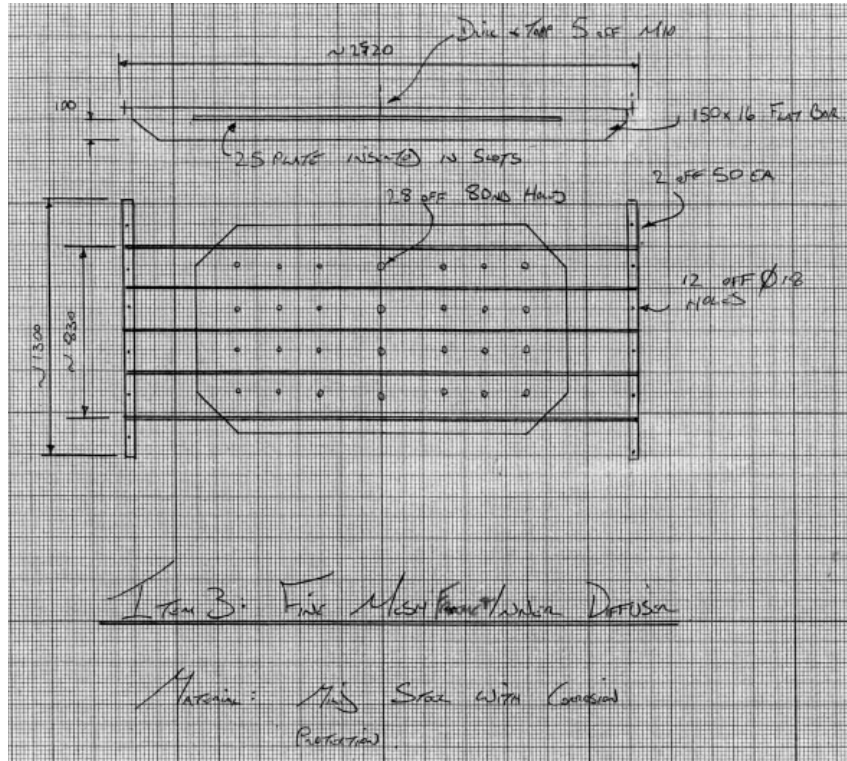 Drill & Tapp 5 off M10
~2920
100
150 x 16 Flat Bar
25 Plate inserted in slots
2 off 50 EA
28 off 80NB Holes
12 off Ø18
Holes
~1300
~830
Item 3: Fine Mesh Frame/Inner Diffuser
Material: Mild Steel with Corrosion
Protection